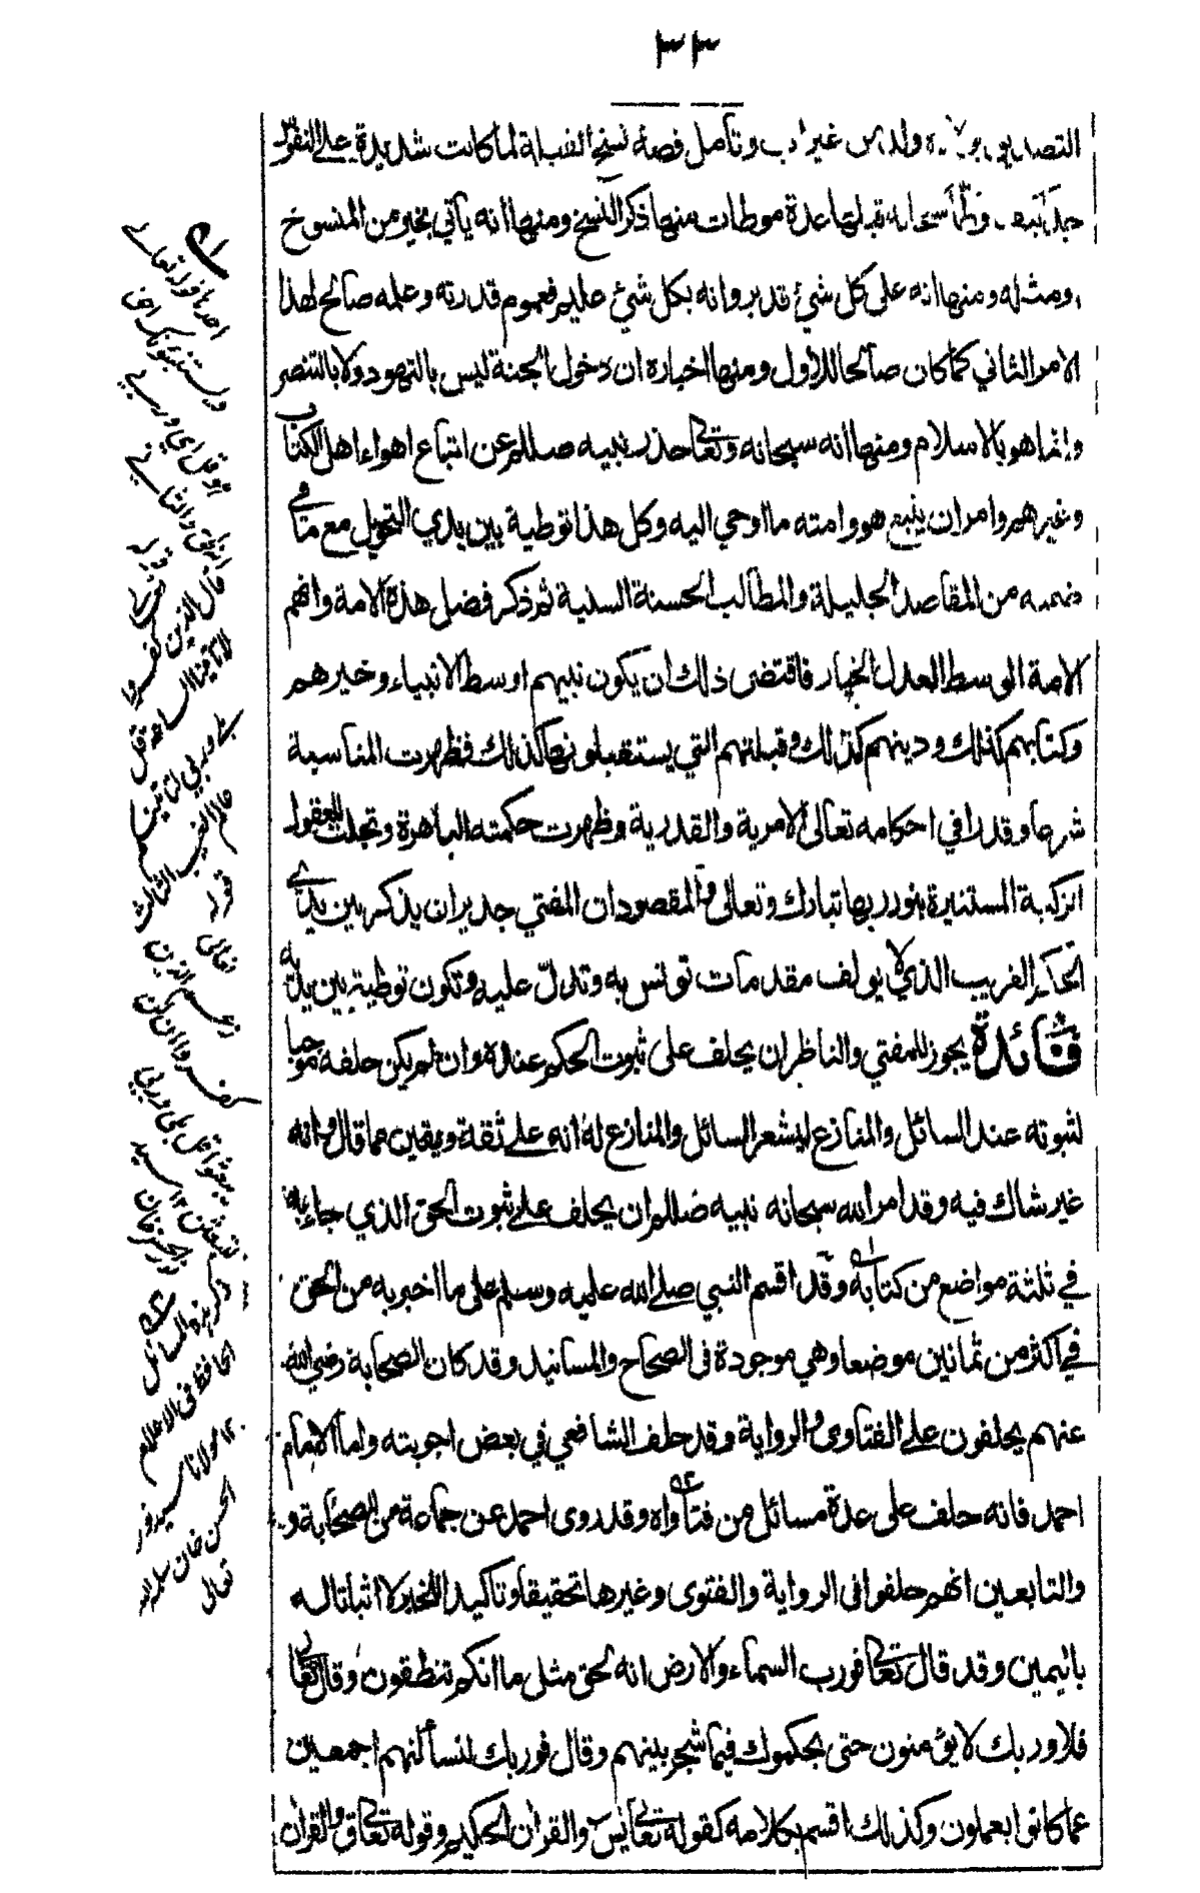 ٣٣
ولد من غير اب وتأمل قصة نسخ القبلة لما كانت شديدة على النفوس
جدا كيف وطأ سبحانه قبلها عدة موطات منها ذكر النسخ ومنها انه يأتي بخير من المنسوخ
او مثله ومنها انه على كل شئ قدير وانه بكل شئ عليم فعموم قدرته وعلمه صالح لهذا
الامر الثاني كما كان صالحا للاول ومنها اخباره ان دخول الجنة ليس بالتهود ولا بالتنصر
وانما هو بالاسلام ومنها انه سبحانه وتعالى حذر نبيه صللم عن اتباع اهواء اهل الكتاب
وغيرهم وامر ان يتبع هو وامته ما اوحي اليه وكل هذا توطية بين يدي التحويل مع ما في
ضمنه من المقاصد الجليلة والمطالب الحسنة السنية ثم ذكر فضل هذه الامة وانهم
الامة الوسط العدل الخيار فاقتضى ذلك ان يكون نبيهم اوسط الانبياء وخيرهم
وكتابهم كذلك ودينهم كذلك وقبلتهم التي يستقبلونها كذلك فظهرت المناسبة
شرعا وقدرا في احكامه تعالى الامرية والقدرية وظهرت حكمته الباهرة وتجلت للعقول
الزكية المستنيرة بنور ربها تبارك وتعالى والمقصود ان المفتي جدير ان يذكر بين يدي
الحكم الغريب الذي لا يولف مقدمات تونس به وتدل عليه وتكون توطية بين يديه
فائدة يجوز للمفتي والناظر ان يحلف على ثبوت الحكم عنده وان لم يكن حلفه موجبا
لثبوته عند السائل والمنازع ليشعر السائل والمنازع له انه على ثقة ويقين مما قال وانه
غير شاك فيه وقد امر الله سبحانه نبيه صللم ان يحلف على ثبوت الحق الذي جاء به
في ثلثة مواضع من كتابه وقد اقسم النبي صلى الله عليه وسلم على ما اخبر به من الحق
في اكثر من ثمانين موضعا وهي موجودة في الصحاح والمسانيد وقد كان الصحابة رضي الله
عنهم يحلفون على الفتاوى والرواية وقد حلف الشافعي في بعض اجوبته واما الامام
احمد فانه حلف على عدة مسائل من فتاواه وقد روى احمد عن جماعة من الصحابة و
والتابعين انهم حلفوا في الرواية والفتوى وغيرها تحقيقا وتاكيدا للخبر لا اثباتا له
باليمين وقد قال تعالى فورب السماء والارض انه لحق مثل ما انكم تنطقون وقال تعالى
فلا وربك لا يؤمنون حتى يحكموك فيما شجر بينهم وقال فوربك لنسألنهم اجمعين
عما كانوا يعملون وكذلك اقسم بكلامه كقوله تعالى يس والقران الحكيم وقوله تعالى ق والقران
احدها قوله تعالى
ويستنبئونك احق
هو قل اي وربي
انه لحق والثاني
قوله تعالى
قال الذين كفروا
لا تأتينا الساعة قل
بلى وربي لتأتينكم
عالم الغيب الثالث
قوله
تعالى
زعم الذين
كفروا ان لن
يبعثوا قل بلى وربي
لتبعثن ١٢ سيد
نور الحسن خان
ذكر هذه المسائل
الحافظ في الاعلام
١٢ مولانا سيد نور
الحسن خان سلمه الله
تعالى